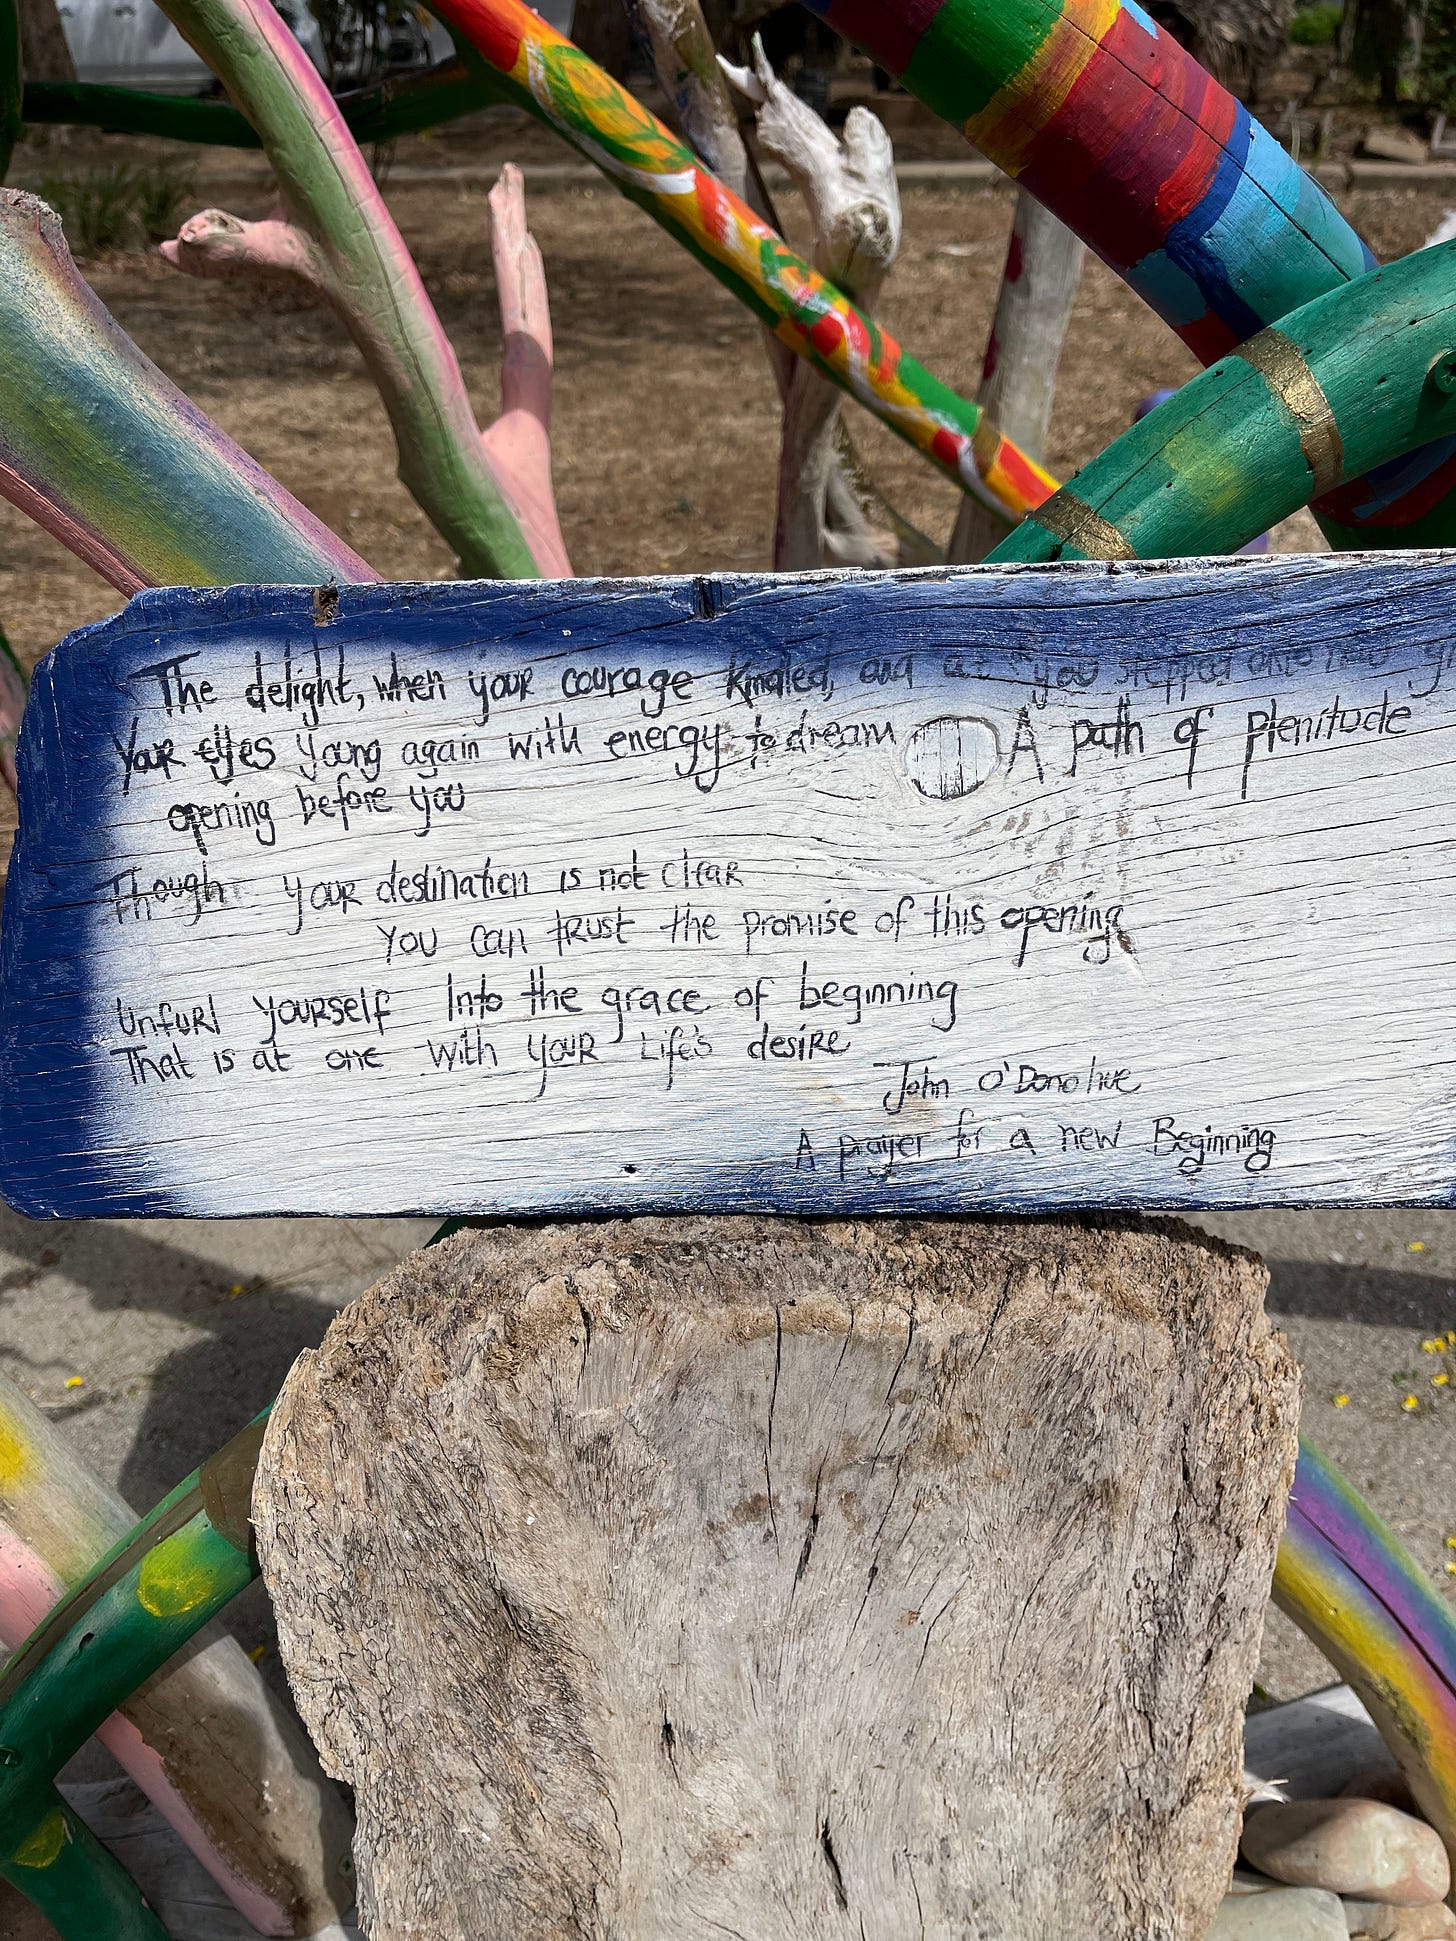 The delight, when your courage kindled, and you stepped onto new
Your eyes young again with energy to dream A path of plenitude
opening before you
Though your destination is not clear
You can trust the promise of this opening
Unfurl yourself Into the grace of beginning
That is at one with your Life's desire
John O'Donohue
A prayer for a new Beginning